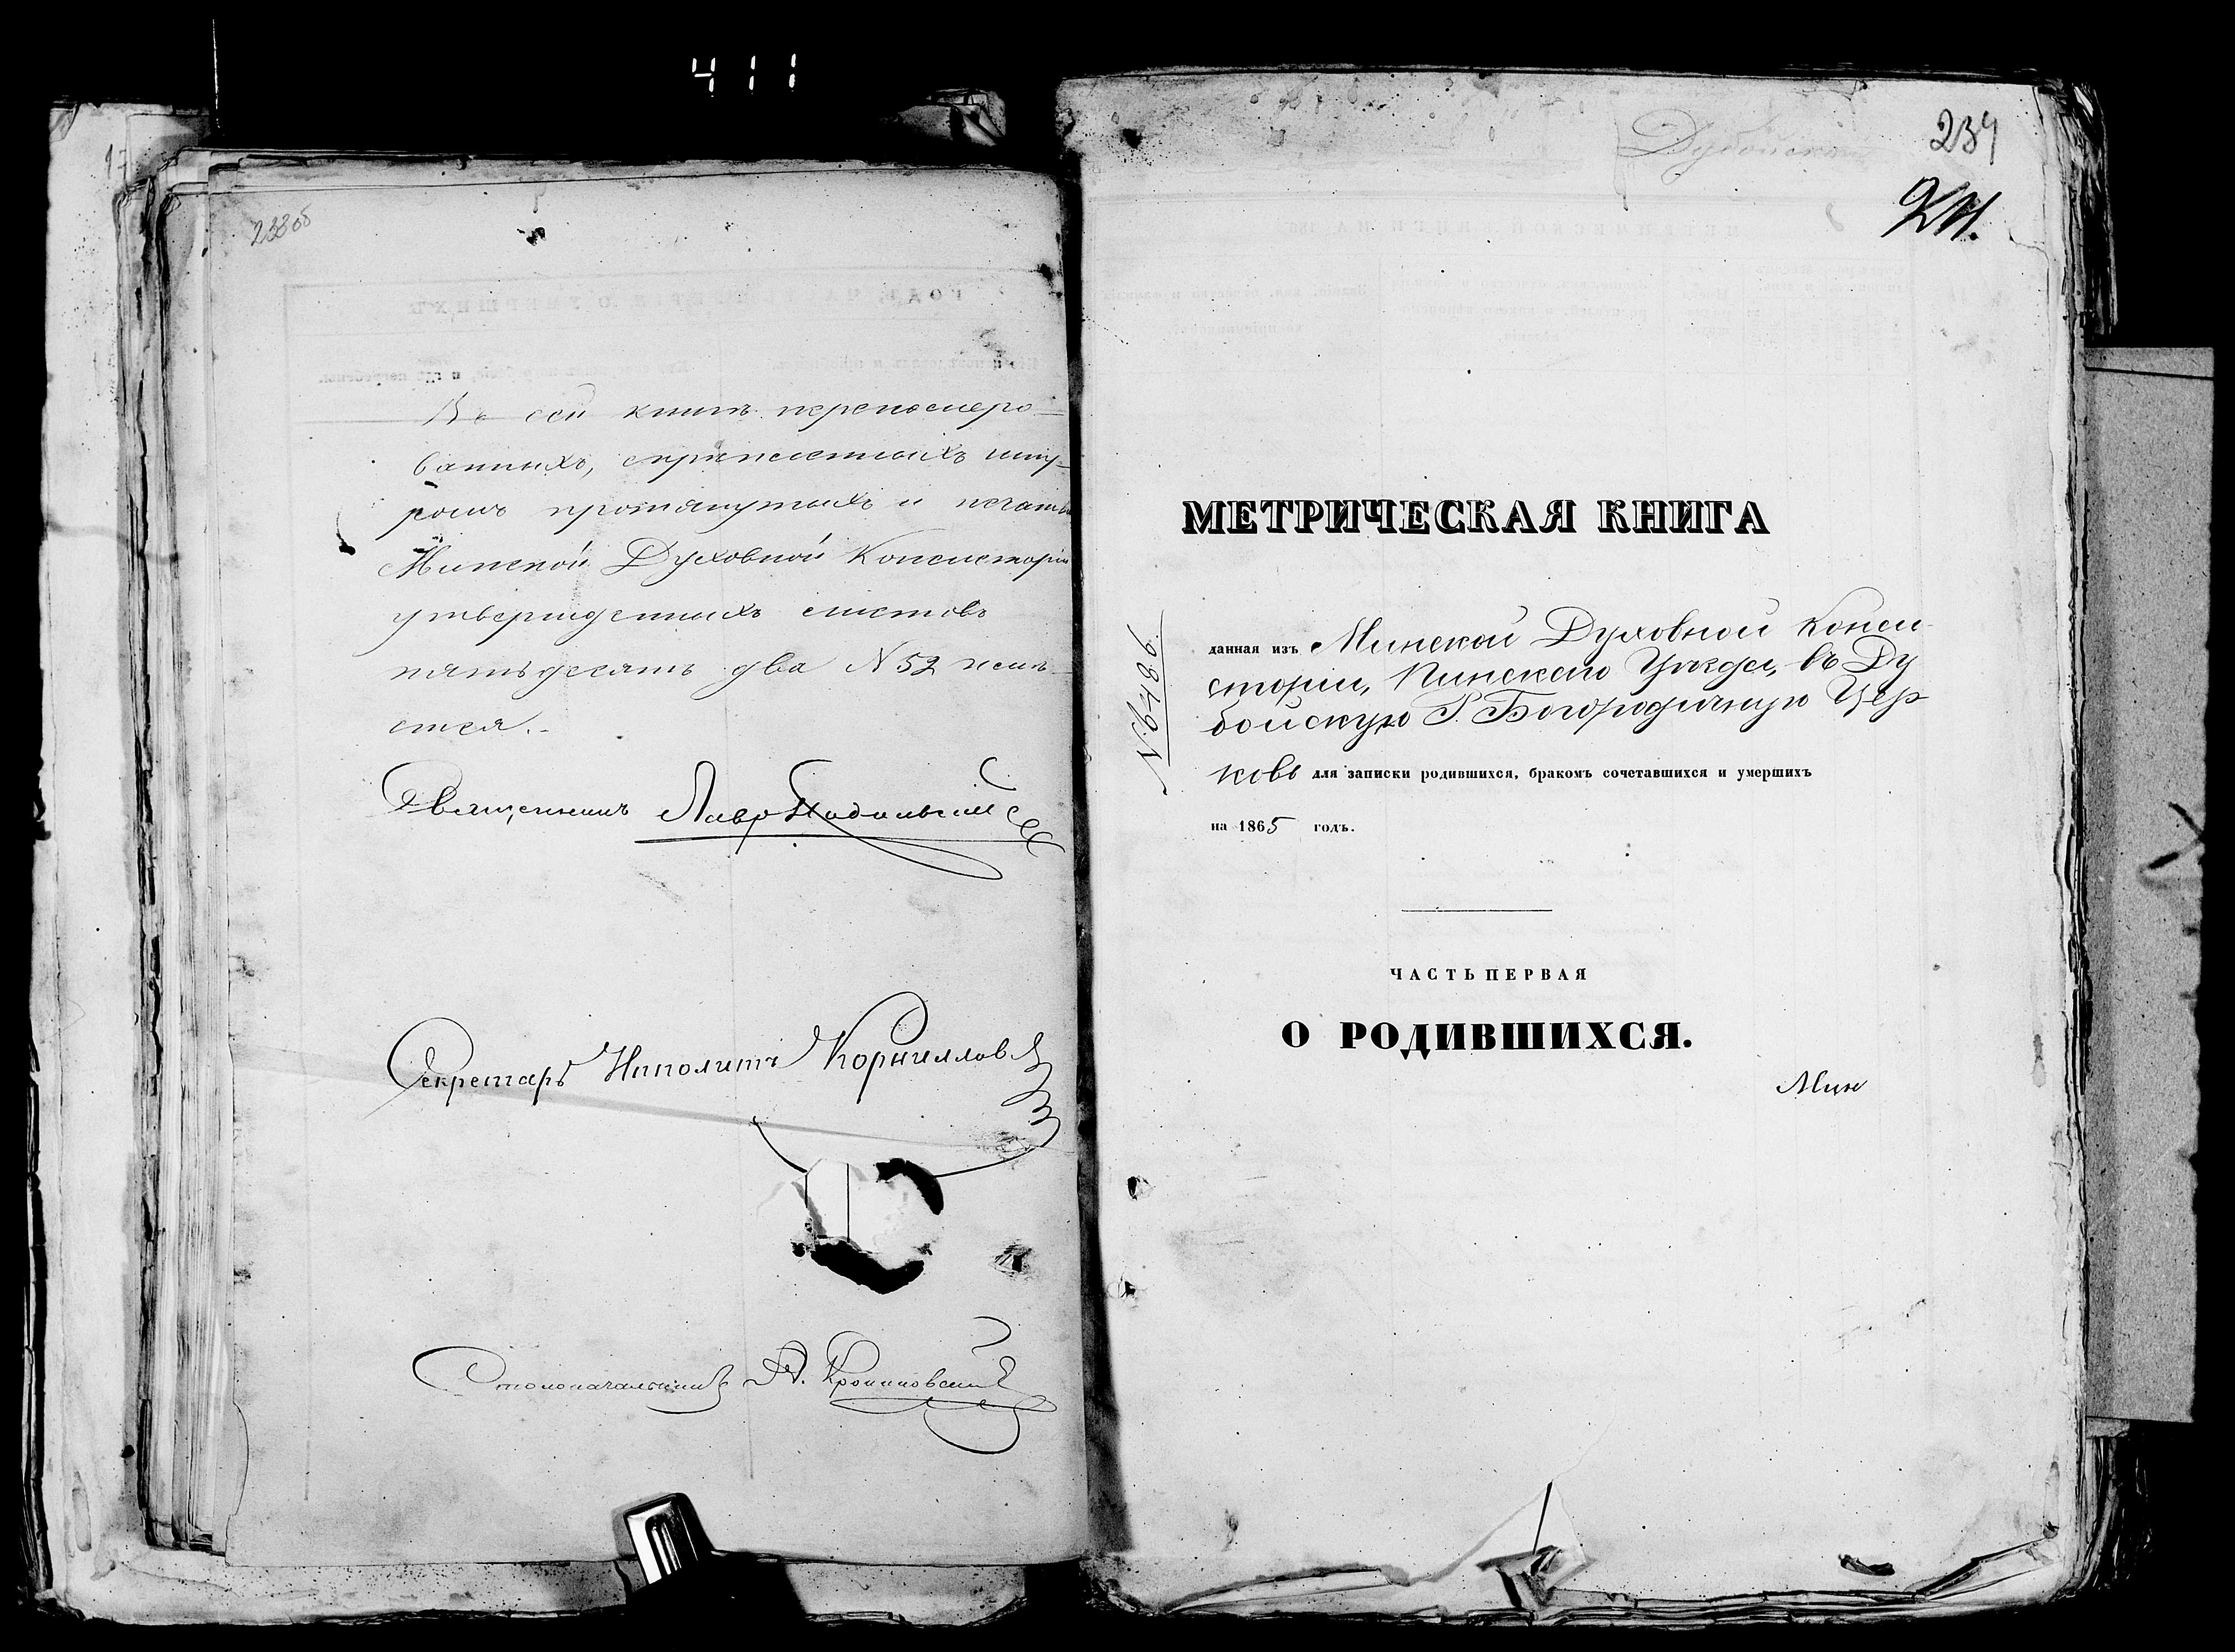 411
233об
Въ сей книгѣ перенумеро-
ванныхъ, скрѣпленныхъ шну-
ромъ протянутыхъ и печатью
Минской Духовной Консисторіи
утвержденныхъ листовъ
пятьдесятъ два N 52 имѣ-
ется.
Священникъ Лавр
Секретарь Ипполитъ Корнилловъ
Столоначальникъ
234
Дубойск
МЕТРИЧЕСКАЯ КНИГА
N 9486.
данная изъ Минской Духовной Конси-
сторіи, Пинскаго Уѣзда, въ Ду
бойскую Р. Богородичную Цер
ковь для записки родившихся, бракомъ сочетавшихся и умершихъ
на 1865 годъ.
ЧАСТЬ ПЕРВАЯ
О РОДИВШИХСЯ.
Мин